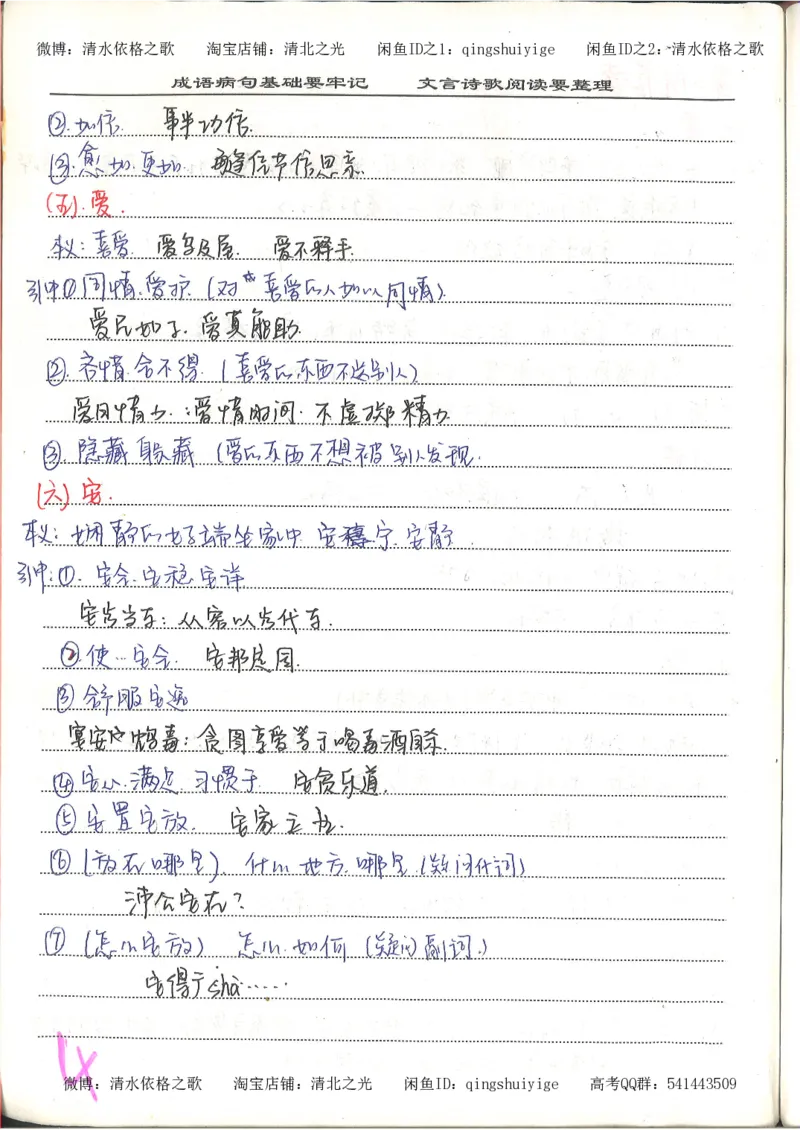 微博：清水依格之歌 淘宝店铺：清北之光 闲鱼ID之1：qingshuiyige 闲鱼ID之2：清水依格之歌
成语病句基础要牢记 文言诗歌阅读要整理
②.加倍. 事半功倍.
③.愈加.更加. 每逢佳节倍思亲.
(五).爱.
本义：喜爱. 爱乌及屋. 爱不释手.
引申①同情.爱护.(对喜爱的人加以同情).
爱民如子.爱莫能助.
②.吝惜.舍不得.(喜爱的东西不送别人)
爱日惜力.：爱惜时间.不虚掷精力.
③.隐藏 躲藏 (爱的东西不想被别人发现.
(六)安.
本义：娴静的女子端坐家中 安稳宁.安静.
引申：①.安全.安稳.安详
安步当车：从容以步代车.
②使…安全. 安邦定国.
③舒服安逸
宴安鸩毒：贪图享受等于喝毒酒自杀.
④安心.满足.习惯于. 安贫乐道.
⑤安置安放. 安家立业.
⑥(放在哪里).什么地方.哪里.(疑问代词)
沛公安在？
⑦(怎么安放) 怎么.如何(疑问副词.)
安得广shà……
4
微博：清水依格之歌 淘宝店铺：清北之光 闲鱼ID：qingshuiyige 高考QQ群：541443509